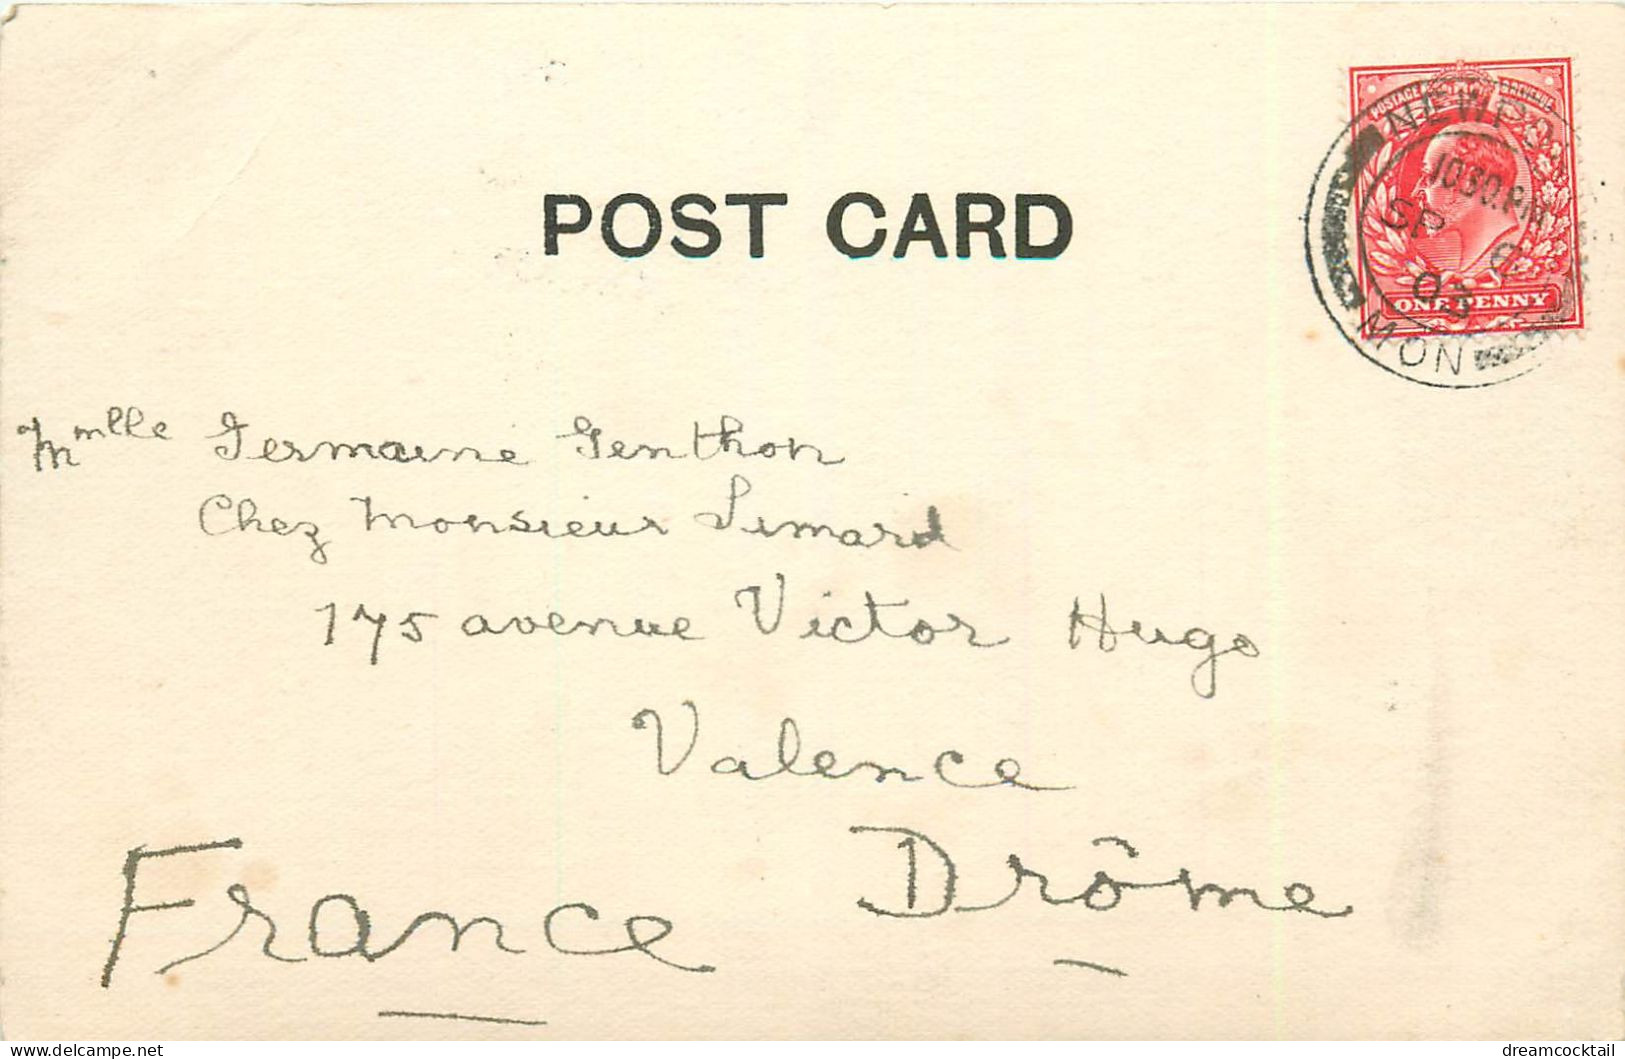 POST CARD
POSTAGE REVENUE
NEWPO
10.30.PM
SP
03
MON
ONE PENNY
Mmlle Germaine Genthon
Chez Monsieur Simard
175 avenue Victor Hugo
Valence
Drôme
France
dreamcocktail